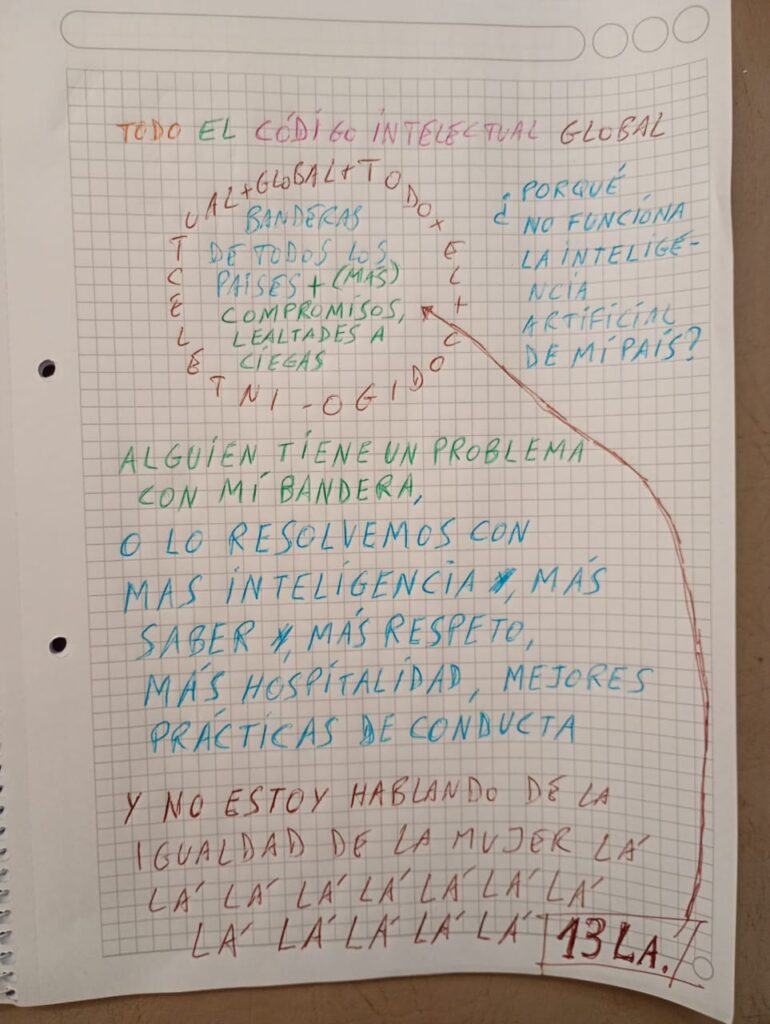 TODO EL CÓDIGO INTELECTUAL GLOBAL
TODOX EL+CODIGO-INTELECTUAL+GLOBAL+
BANDERAS
DE TODOS LOS
PAISES + (MAS)
COMPROMISOS,
LEALTADES A
CIEGAS
¿PORQUÉ
NO FUNCIONA
LA INTELIGE-
NCIA
ARTIFICIAL
DE MI PAÍS?
ALGUIEN TIENE UN PROBLEMA
CON MÍ BANDERA,
O LO RESOLVEMOS CON
MAS INTELIGENCIA, MÁS
SABER, MÁS RESPETO,
MÁS HOSPITALIDAD, MEJORES
PRÁCTICAS DE CONDUCTA
Y NO ESTOY HABLANDO DE LA
IGUALDAD DE LA MUJER LÁ
LÁ LÁ LÁ LÁ LÁ LÁ LÁ
LÁ LÁ LÁ LÁ LÁ
13 LA.